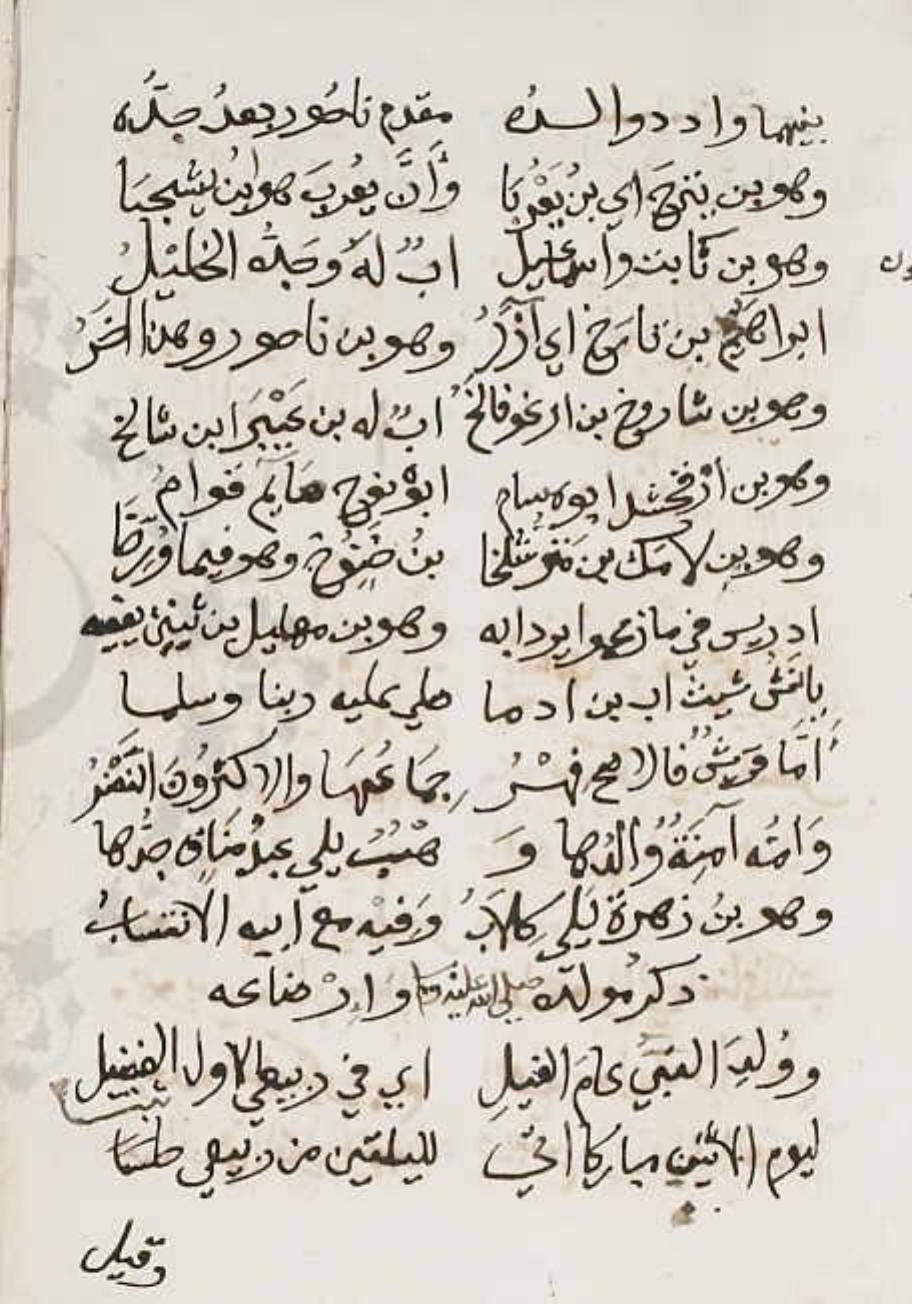 بينهما وا ددوا لسده    مقدم ناحُور بعدُ جدُّه
وهو بن بنرحَ اي بنُ يَعْرُبَا    وأنَّ يعْربَ هو ابنُ يشجبَا
وهو بن ثابت واسماعيل    ابٌ لهُ وجَدُّه الخليْلُ
ون
ابراهيم بن تارخ اي آزرُ    وهو بن ناحور وهذا اخرُ
وهو بن شاروخ بن ارغو فالخُ    ابٌ له بن عَيْبَرَ ابن شالخ
وهو بن ارْفخشد ابوه سام    ابوهْ نوح صَآيم قوام
وهو بن لامك بن متوشلخا    بنُ خنوخ وهو فيما وُرّخا
ادريس في مازعموا يرد ابه    وهو بن مهليل بن قينن يقفيه
يانش شيث اب بن ادما    صلى عليه ربنا وسلما
أما قريشٌ فالاصح فهْرُ    جماعُهَا والاكثرُونَ النَّضْرُ
وَامّه آمنَةٌ وَالدُها وَ    هْبٌ يلي عبدُ مَنَافٍ جدُّها
وهو بنُ زهرة يَلي كلابُ    وَفيْه مع ابيه الانتسابُ
ذكر مولده صلى الله عليه وسلم وَارْضاعه
وولدَ النبيّ عامَ الفيلِ    اي في ربيع الاول الفضيل
ليوم الاثنين مباركا اتىٰ    لليلتين من ربيع خلتا ثبت
وقيل